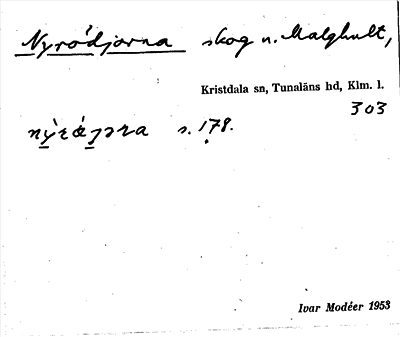 Nyrödjorna skog n. Malghult,
Kristdala sn, Tunaläns hd, Klm. l.
303
s. 178.
Ivar Modéer 1953